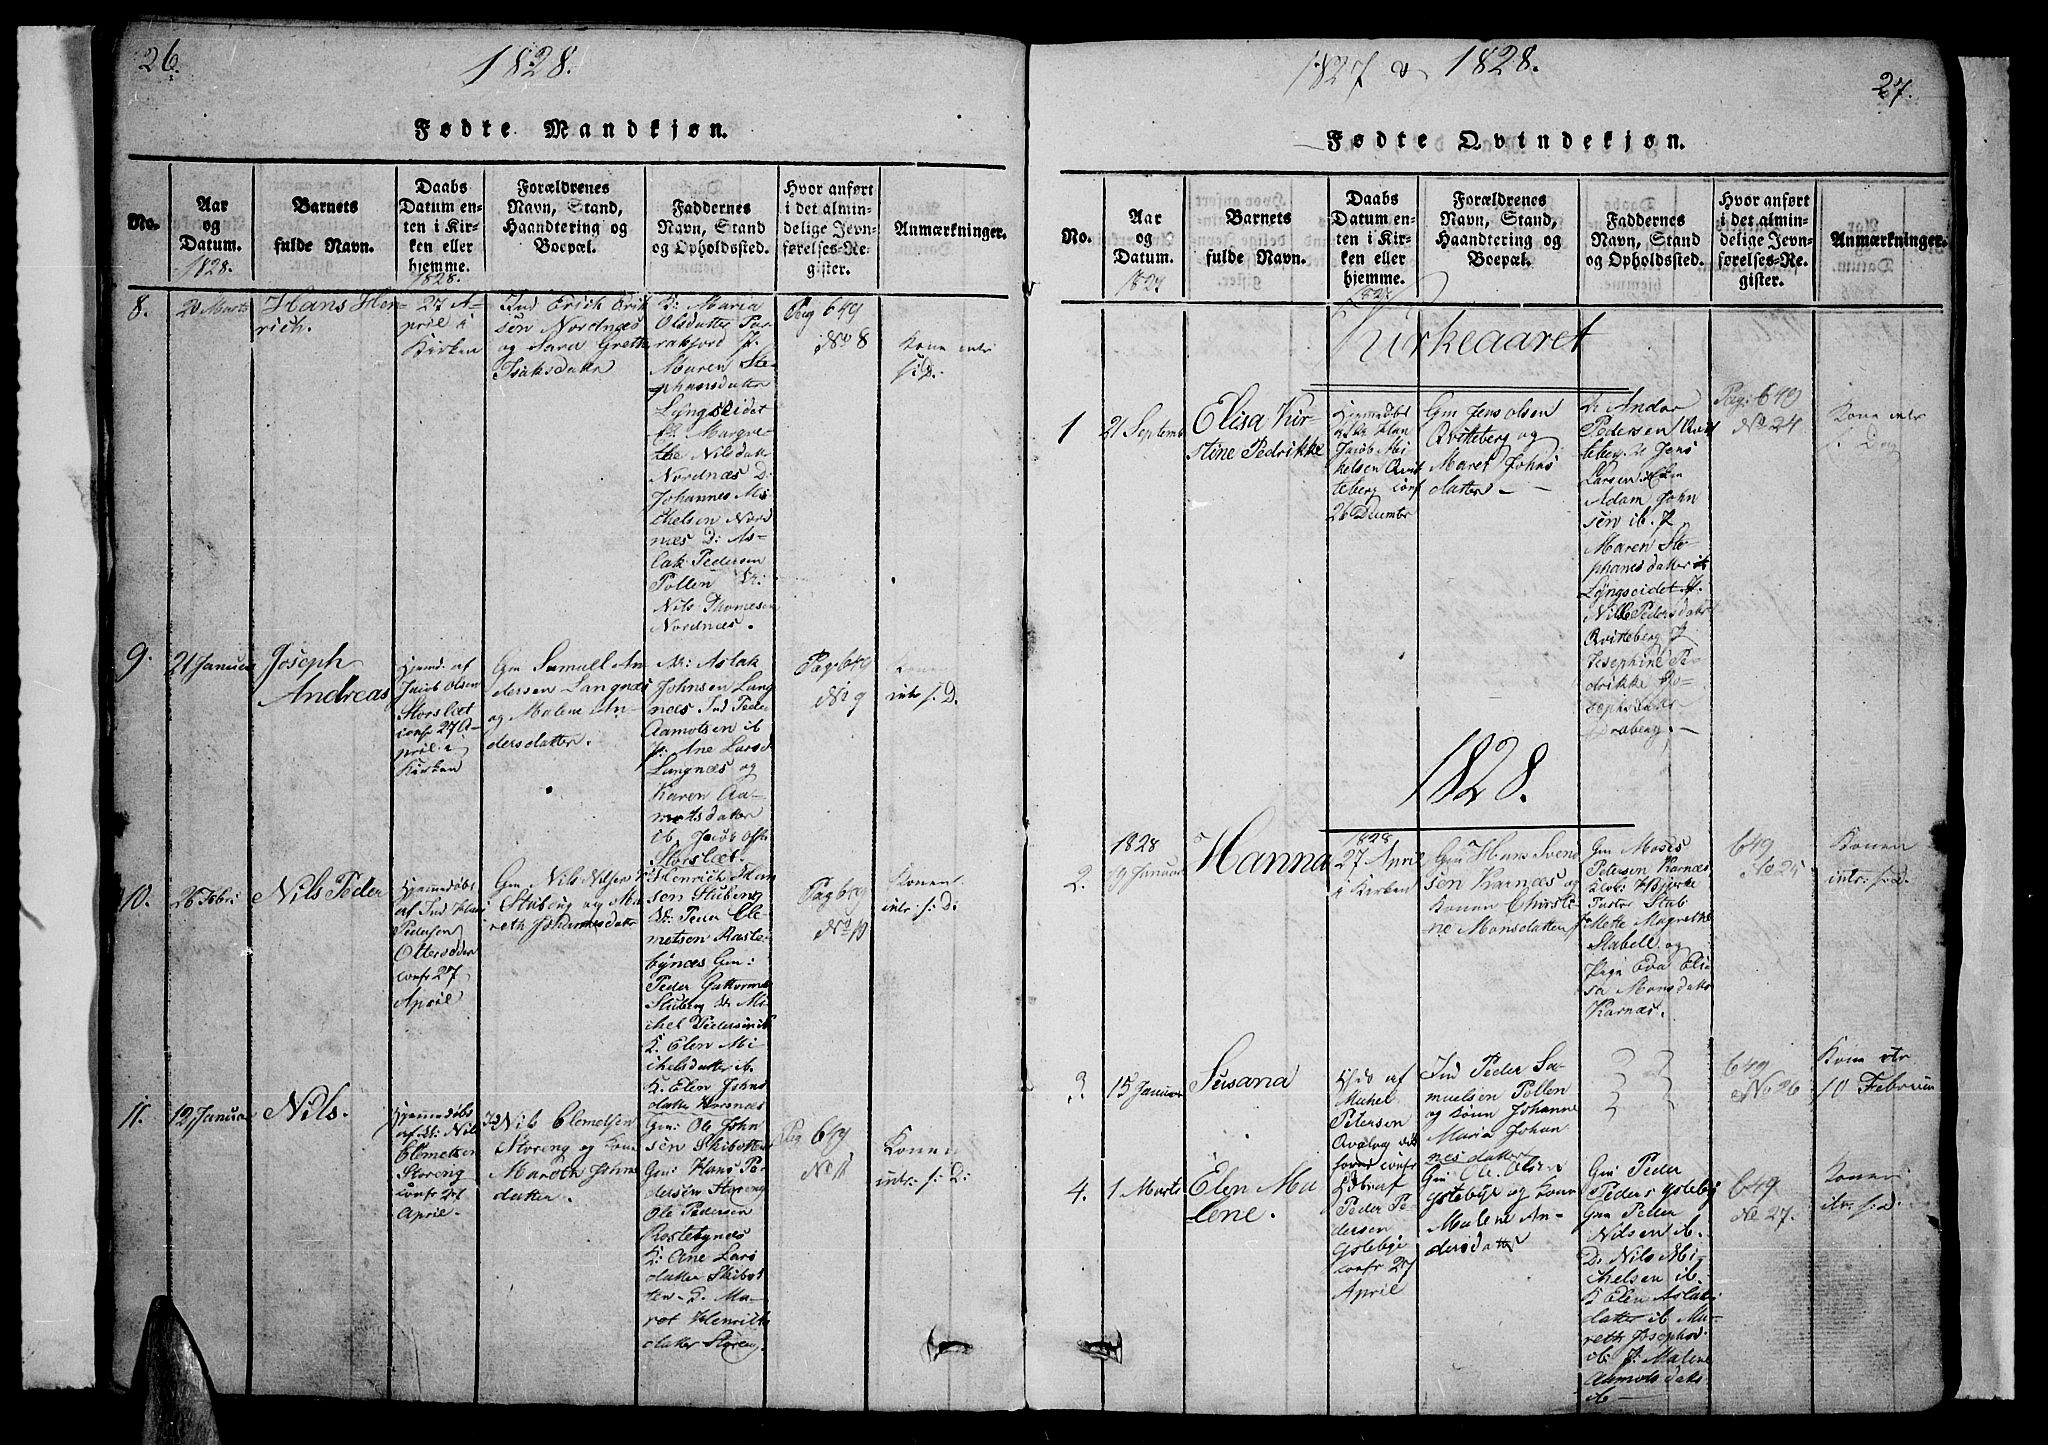 26.
1828.
Fødte Mandkjøn.
No.
Aar
og
Datum.
1828.
Barnets
fulde Navn.
Daabs
Datum en-
ten i Kir-
ken eller
hjemme.
1828.
Forældrenes
Navn, Stand,
Haandtering og
Boepæl.
Faddernes
Navn, Stand
og Opholdssted.
Hvor anført
i det almin-
delige Jevn-
førelses-Re-
gister.
Anmærkninger.
8.
20 Marts
Hans Hen-
rich.
27 A-
pril i
Kirken
Ind Erich Erik
sen Nordnæs
og Sara Grethe
Isaksdatter
K: Maria
Olsdatter
P.
Maren Ste-
phansdatter
Lyngseidet
P. Margre-
the Nilsdatr
Nordnæs D:
Johannes Mi-
chelsen Nord
næs D: As-
lak Pedersen
Pollen
Nils Thomesen
Nordnæs.
Pag 649
No 8
Kone intr
s: D:
9.
21 Januar
Joseph
Andreas
Hjemd. af
Jacob Olsen
Storslæt
conf 27 A-
pril i
Kirken
Gm Samuel An
dersen Langnæs
og Malene An-
dersdatter.
Aslak
Johnsen Lang
næs Ind Peder
Aamotsen ib
P: Ane Larsd
Langnæs og
Karen Aa-
motsdatter
ib. Jacob Olsen
Storslæt.
Pag: 649
No 9
Kone
intr s: D.
10.
26 Febr:
Nils Peder
Hjemmedøbt
af Ind
Pedersen
Ottersødden
conf 27
April
Gm Nils Nilsen
Stubeng og Ma
reth Johannesdatr
Henrich Han
sen Stubeng
Peder Cle
metsen Raste-
bynæs Gm:
Peder Guttormsen
Stubeng Mi-
chel Pedersen ib
K. Elen Mi-
chelsdatter ib.
K. Elen Johns
datter Horsnæs
Pag 649
No 10
Konen
intr: s: D:
11.
12 Januar
Nils.
Hjemmedøbt
af Nils
Clemetsen
Storeng
conf 27
April.
Nils Clemetsen
Storeng og Kone
Mareth Johns
datter.
Gm: Ole John
sen Skibotten
Gm: Hans Pe-
dersen Storeng
Ole Pedersen
Rastebynæs
K: Ane Lars
datter Skibot
ten. P. Ma-
ret Henriks
datter Storeng.
Pag 649
No 11
Konen
intr: s: D:
1827 & 1828.
27.
Fødte Qvindekjøn.
No.
Aar
og
Datum.
1827
Barnets
fulde Navn.
Daabs
Datum en-
ten i Kir-
ken eller
hjemme.
1827
Forældrenes
Navn, Stand,
Haandtering og
Boepæl.
Faddernes
Navn, Stand
og Opholdssted.
Hvor anført
i det almin-
delige Jevn-
førelses-Re-
gister.
Anmærkninger.
Kirkeaaret
1
21 Septemb
Elisa Kir-
stine Pedrikke
Hjemmedøbt
Jacob Mi
kelsen Qvit
teberg conf
26 Decembr
Gm Jens Olsen
Qvitteberg og
Maret Johns
datter.
Andar
Pedersen Qvit
teberg Jens
Larsen
Adam John
sen ib. P
Maren Ste-
phansdatter
Lyngseidet P.
Nille Pedersdatr
Qvitteberg P
Josephine Pe-
drikke Jo-
sephsdatter
Pag: 649
No 24
Kone intr
s: Dag
1828.
2.
1828
19 Januar
Hanna
1828
27 April
i Kirken
Gm Hans Svend
sen Karnæs og
Konen Chirsti-
ne Monsdatter
Gm Moses
Petersen Karnæs
Pastor Stub
Mette Magrethe
Stabell og
Pige Eva Eli-
sa Monsdatr
Karnæs.
649
No 25
Konen
intr: s: D:
3.
15 Januar
Susana
af
Mikel
Petersen
Ind Peder Sa-
muelsen Pollen
og Kone Johanne
Maria Johan
nesdatter
649
No 26
Kone itr
10 Februar
4.
1 Marts
Elen Ma
lene.
af
Peder Pe
dersen
Ystebye
conf 27
April
Gm Ole Olsen
Ystebye og Kone
Malene An-
dersdattr
Gm Peder
Peders Ystebye
Gm Peder
Nilsen ib.
D: Nils Mi-
chelsen ib.
K Elen Aslaks
datter ib Ma-
reth Josephsd
ib: P: Malene
Aamotsdatr
ib
649
No 27.
Konen
itr: s: D: